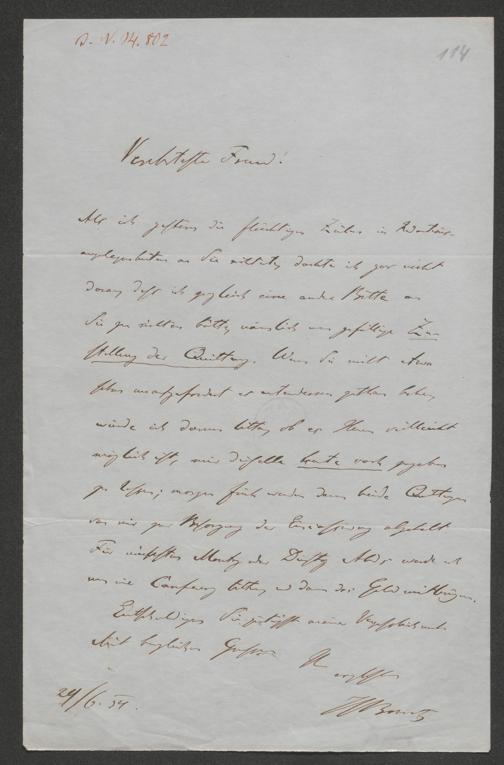 D. N. 14.802
114
Verehrtester Freund!
Als ich gestern die flüchtigen Zeilen in
angelegenheiten an Sie richtete, dachte ich gar nicht
daran, daß ich zugleich eine andre Bitte an
Sie zu richten hätte, nämlich um gefällige Zu-
stellung der Quittung. Wenn Sie nicht etwa
schon unaufgefordert es gethan haben,
würde ich darum bitten, ob es Ihnen vielleicht
möglich ist, mir dieselbe heute noch
zu lassen; morgen früh werden dann beide Quittungen
von mir zur Besorgung der abgeholt
Für Montag oder Dienstag Abends werde ich
um eine Conferenz bitten und dann das Geld mitbringen.
Entschuldigen Sie meine
Mit herzlichem Grusse Ihr
ergebenster
HBonitz
24/6. 54.